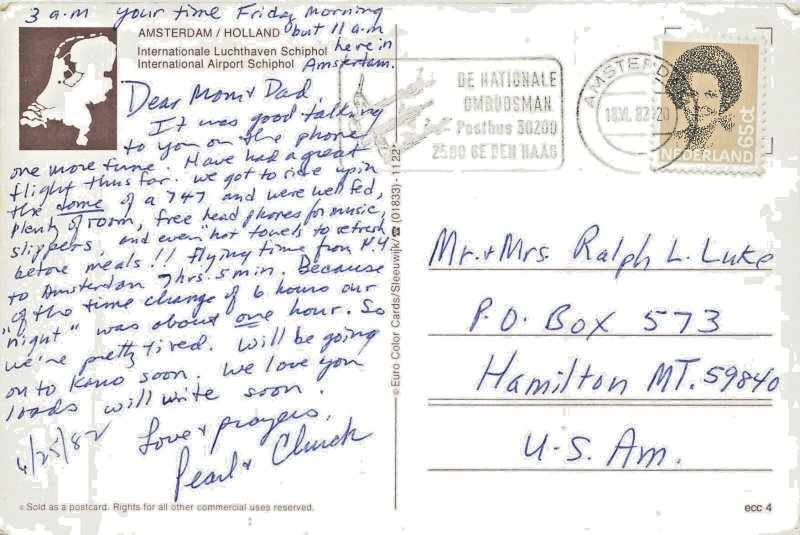 3 a.m your time Friday morning
but 11 a.m
here in
Amsterdam.
AMSTERDAM / HOLLAND
Internationale Luchthaven Schiphol
International Airport Schiphol
Dear Mom & Dad
It was good talking
to you on the phone
one more time. Have had a great
flight thus far. we got to ride up in
the dome of a 747 and were well fed,
plenty of room, free head phones for music,
slippers, and even "hot towels to refresh
before meals!! flying time from N.Y
to Amsterdam 7 hrs. 5 min. Because
of the time change of 6 hours our
"night" was about one hour. So
we're pretty tired. Will be going
on to Kano soon. We love you
loads will write soon.
Love & prayers,
Pearl & Chuck
6/25/82
© Sold as a postcard. Rights for all other commercial uses reserved.
© Euro Color Cards/Sleeuwijk/☎ (01833)-1122*
DE NATIONALE
OMBUDSMAN
Postbus 30200
2500 GE DEN HAAG
AMSTERDAM
NEDERLAND
65ct
Mr. & Mrs. Ralph L. Luke
P.O. Box 573
Hamilton MT. 59840
U.S. Am.
ecc 4